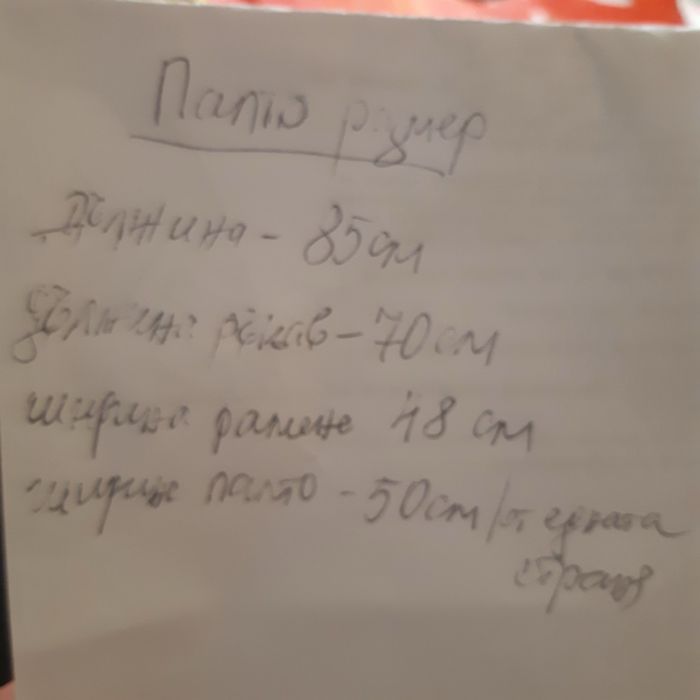 Палто размер
Дължина - 85см
Дължина ръкав - 70см
ширина рамене 48 см
ширина палто - 50см/от едната
страна